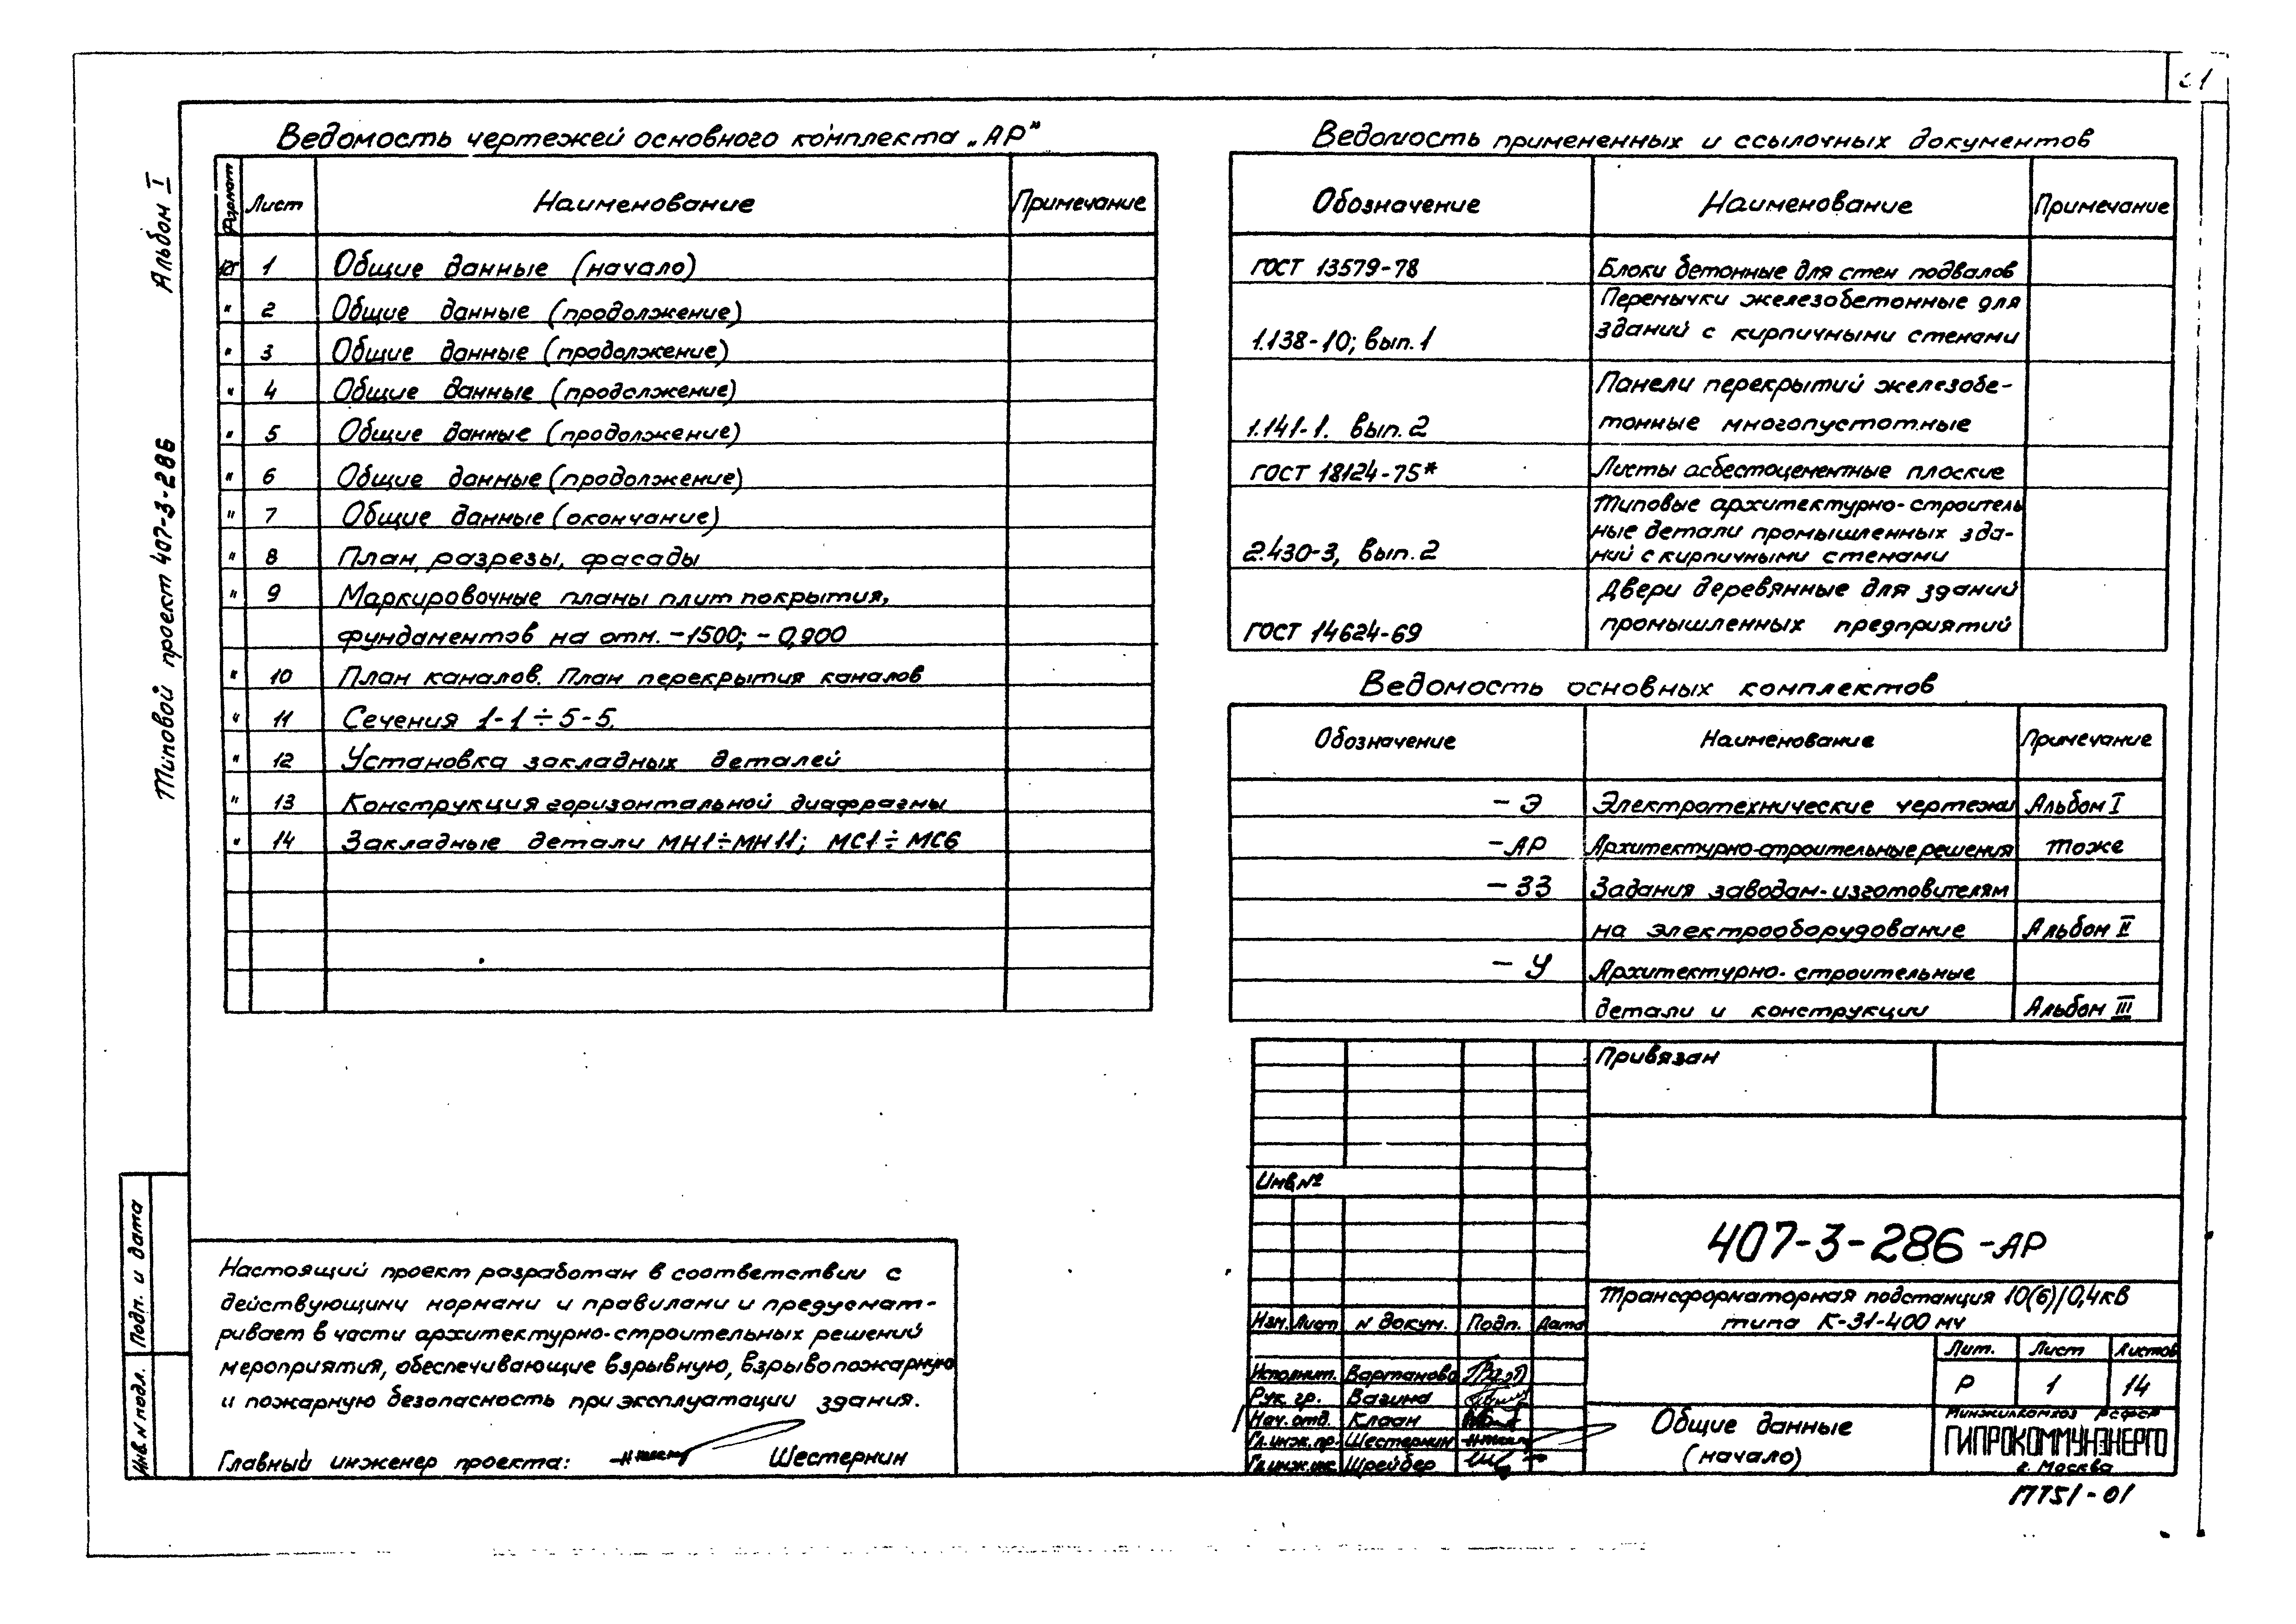 Альбом I
Типовой проект 407-3-286
Ведомость чертежей основного комплекта „АР"
Формат Лист Наименование Примечание
1 Общие данные (начало)
" 2 Общие данные (продолжение)
" 3 Общие данные (продолжение)
" 4 Общие данные (продолжение)
" 5 Общие данные (продолжение)
" 6 Общие данные (продолжение)
" 7 Общие данные (окончание)
" 8 План, разрезы, фасады
" 9 Маркировочные планы плит покрытия,
фундаментов на отм. -1500; -0,900
" 10 План каналов. План перекрытия каналов
" 11 Сечения 1-1÷5-5.
" 12 Установка закладных деталей
" 13 Конструкция горизонтальной диафрагмы
" 14 Закладные детали МН1÷МН11; МС1÷МС6
Ведомость примененных и ссылочных документов
Обозначение Наименование Примечание
ГОСТ 13579-78 Блоки бетонные для стен подвалов
Перемычки железобетонные для
1.138-10; вып.1 зданий с кирпичными стенами
Панели перекрытий железобе-
1.141-1. вып.2 тонные многопустотные
ГОСТ 18124-75* Листы асбестоцементные плоские
Типовые архитектурно-строитель
ные детали промышленных зда-
2.430-3, вып.2 ний с кирпичными стенами
Двери деревянные для зданий
ГОСТ 14624-69 промышленных предприятий
Ведомость основных комплектов
Обозначение Наименование Примечание
-Э Электротехнические чертежи Альбом I
-АР Архитектурно-строительные решения тоже
-ЗЗ Задания заводам-изготовителям
на электрооборудование Альбом II
-У Архитектурно-строительные
детали и конструкции Альбом III
Привязан
Инв.№
407-3-286-АР
Трансформаторная подстанция 10(6)/0,4кВ
типа К-31-400 м4
Изм. Лист N докум. Подп. Дата
Лит. Лист Листов
Р 1 14
Исполнит. Вартанова
Рук. гр. Вагина
Нач. отд. Клаан
Гл.инж.пр. Шестернин
Гл.инж.ин. Шрейбер
Общие данные
(начало)
Минжилкомхоз РСФСР
ГИПРОКОММУНЭНЕРГО
г. Москва
17751-01
Настоящий проект разработан в соответствии с
действующими нормами и правилами и предусмат-
ривает в части архитектурно-строительных решений
мероприятия, обеспечивающие взрывную, взрывопожарную
и пожарную безопасность при эксплуатации здания.
Главный инженер проекта: Шестернин
Подп. и дата
Инв. N подл.